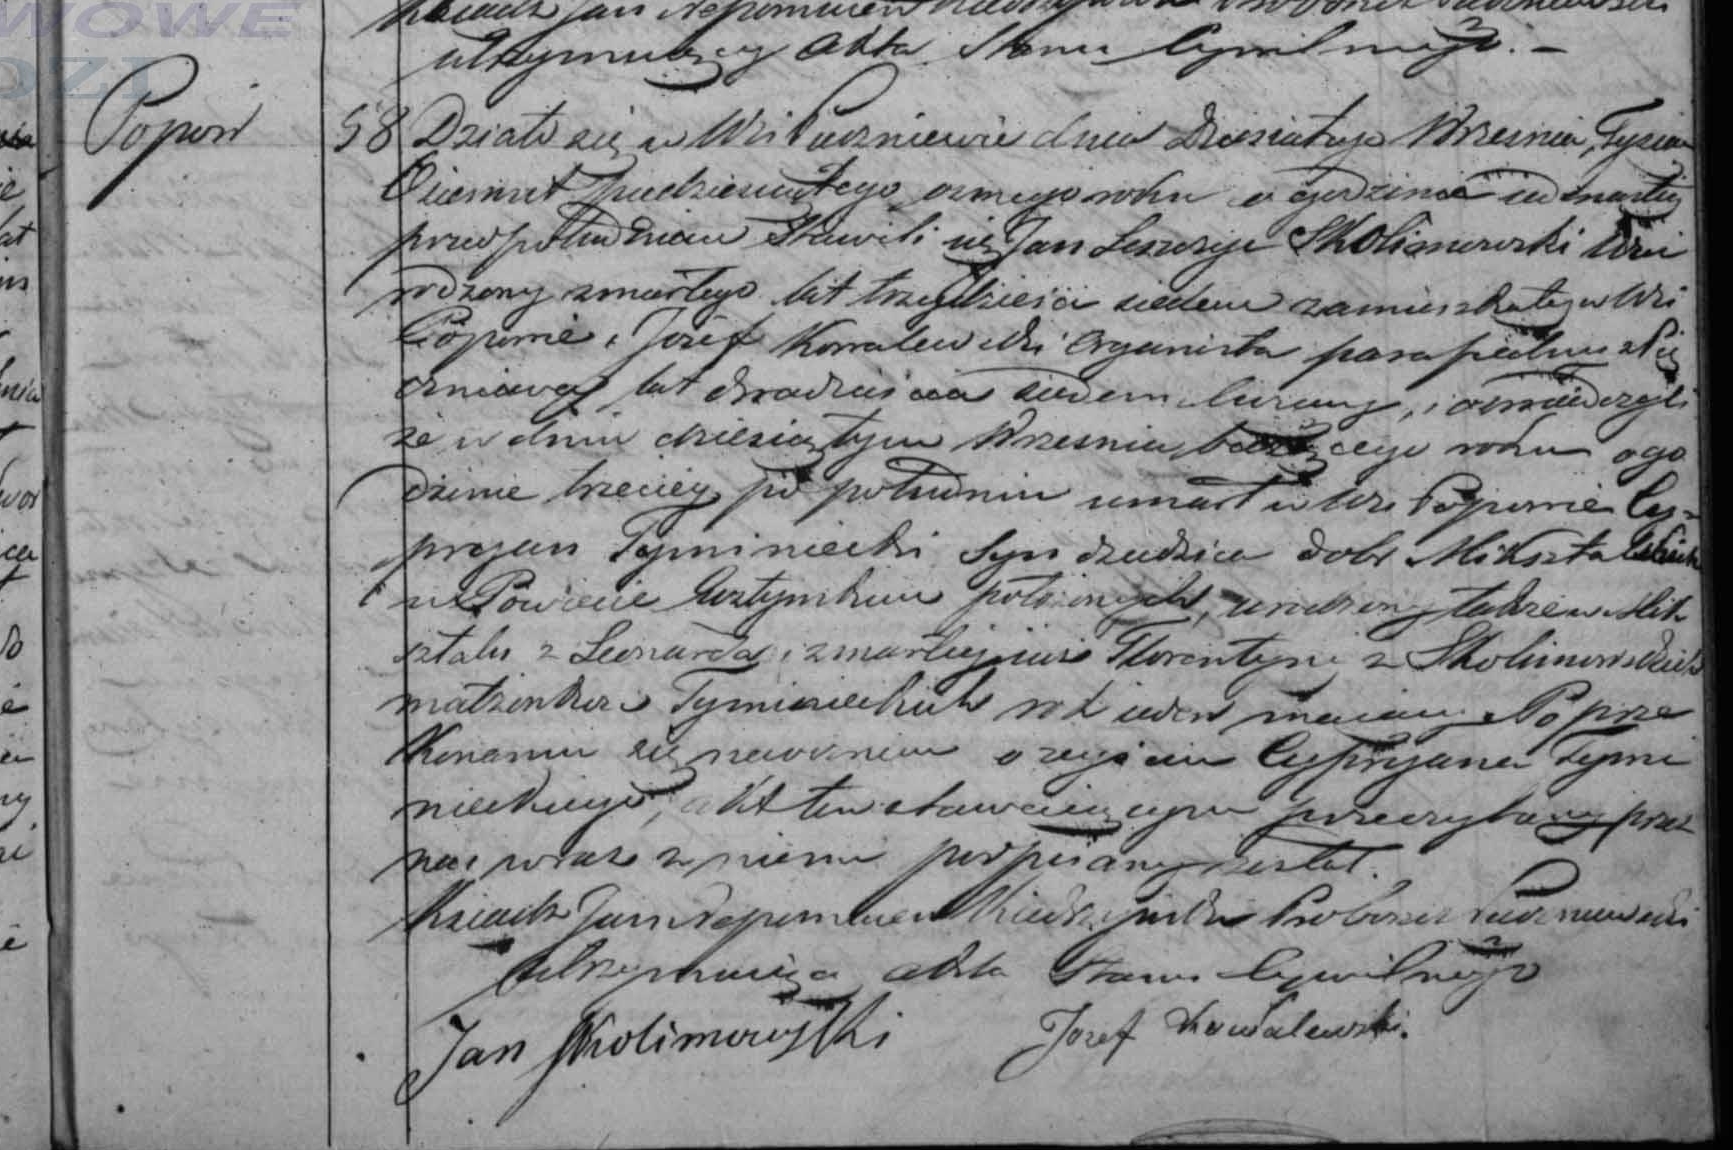 WOWE
ODZI
Ksiądz Jan Nepomucen
utrzymuiący Akta Stanu Cywilnego. –
Popów
58 Działo się w Wsi Pudzniewie dnia Dziesiątego Wrzesnia, Tysiąc
Ośiemset piędziesiątego osmego roku o godzinie
przed południem Stawili się Jan Skolimowski Uro
dzony zmarłego lat trzydzieści siedem zamieszkały w Wsi
Popowie, i Józef Kowalewski Organista parafialny z Pu
dzniewa lat dwadzieścia siedem liczący, i oswiadczyli
że w dniu dziesiątym Wrzesnia bieżącego roku o go
dzinie trzeciey po południu umarł w Wsi Popowie Cy-
pryan Tyminiecki Syn dziedzica dobr Miksztal
w Powiecie położonych, urodzony także w Mik
sztalu z Leonarda i zmarłey iuż Florentyny z Skolimowskich
małżonków Tyminieckich rok ieden maiący. Po prze
konaniu się naocznem o zejściu Cypryana Tymi
nieckiego, Akt ten stawaiącym przeczytany przez
nas wraz z niemi podpisany został.
Ksiądz Jan Nepomucen Proboszcz Pudzniewski
utrzymuiący Akta Stanu Cywilnego
Jan Skolimowski Jozef Kowalewski.